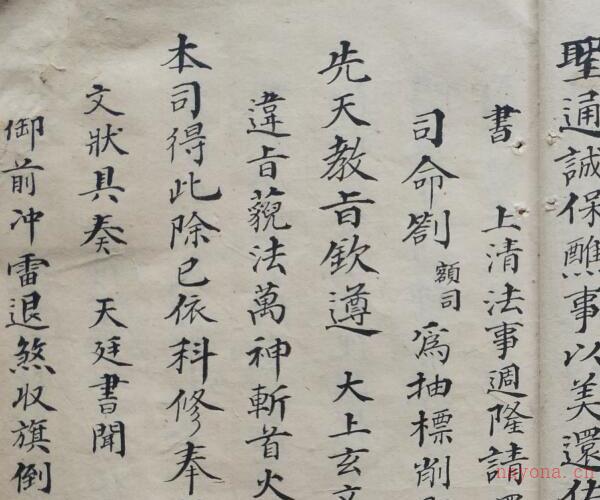 聖通誠保醮事以美還
書 上清法事週隆請
司命劄 額司 爲抽標削
先天教旨欽遵 大上玄
違旨藐法萬神斬首火
本司得此除已依科修奉
文狀具奏 天廷書聞
御前冲雷退煞収旗倒
nayona.cn